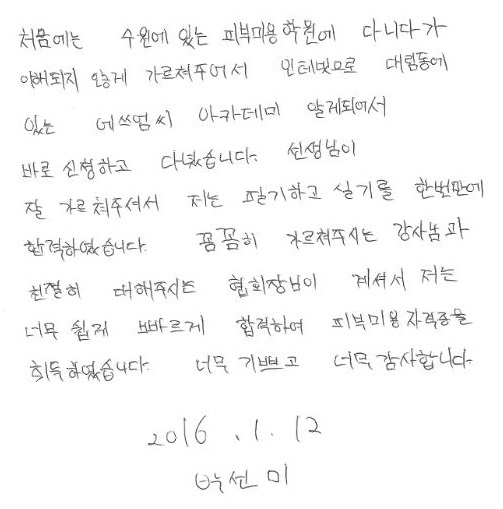 처음에는 수원에 있는 피부미용학원에 다니다가
이해되지 않게 가르쳐주어서 인터넷으로 대림동에
있는 에쓰엠씨 아카데미 알게되어서
바로 신청하고 다녔습니다. 선생님이
잘 가르쳐주셔서 저는 필기하고 실기를 한번만에
합격하였습니다. 꼼꼼히 가르쳐주시는 강사님과
친절히 대해주시는 협회장님이 계셔서 저는
너무 쉽게 빠르게 합격하여 피부미용자격증을
취득하였습니다. 너무 기쁘고 너무 감사합니다.
2016.1.12
박선미